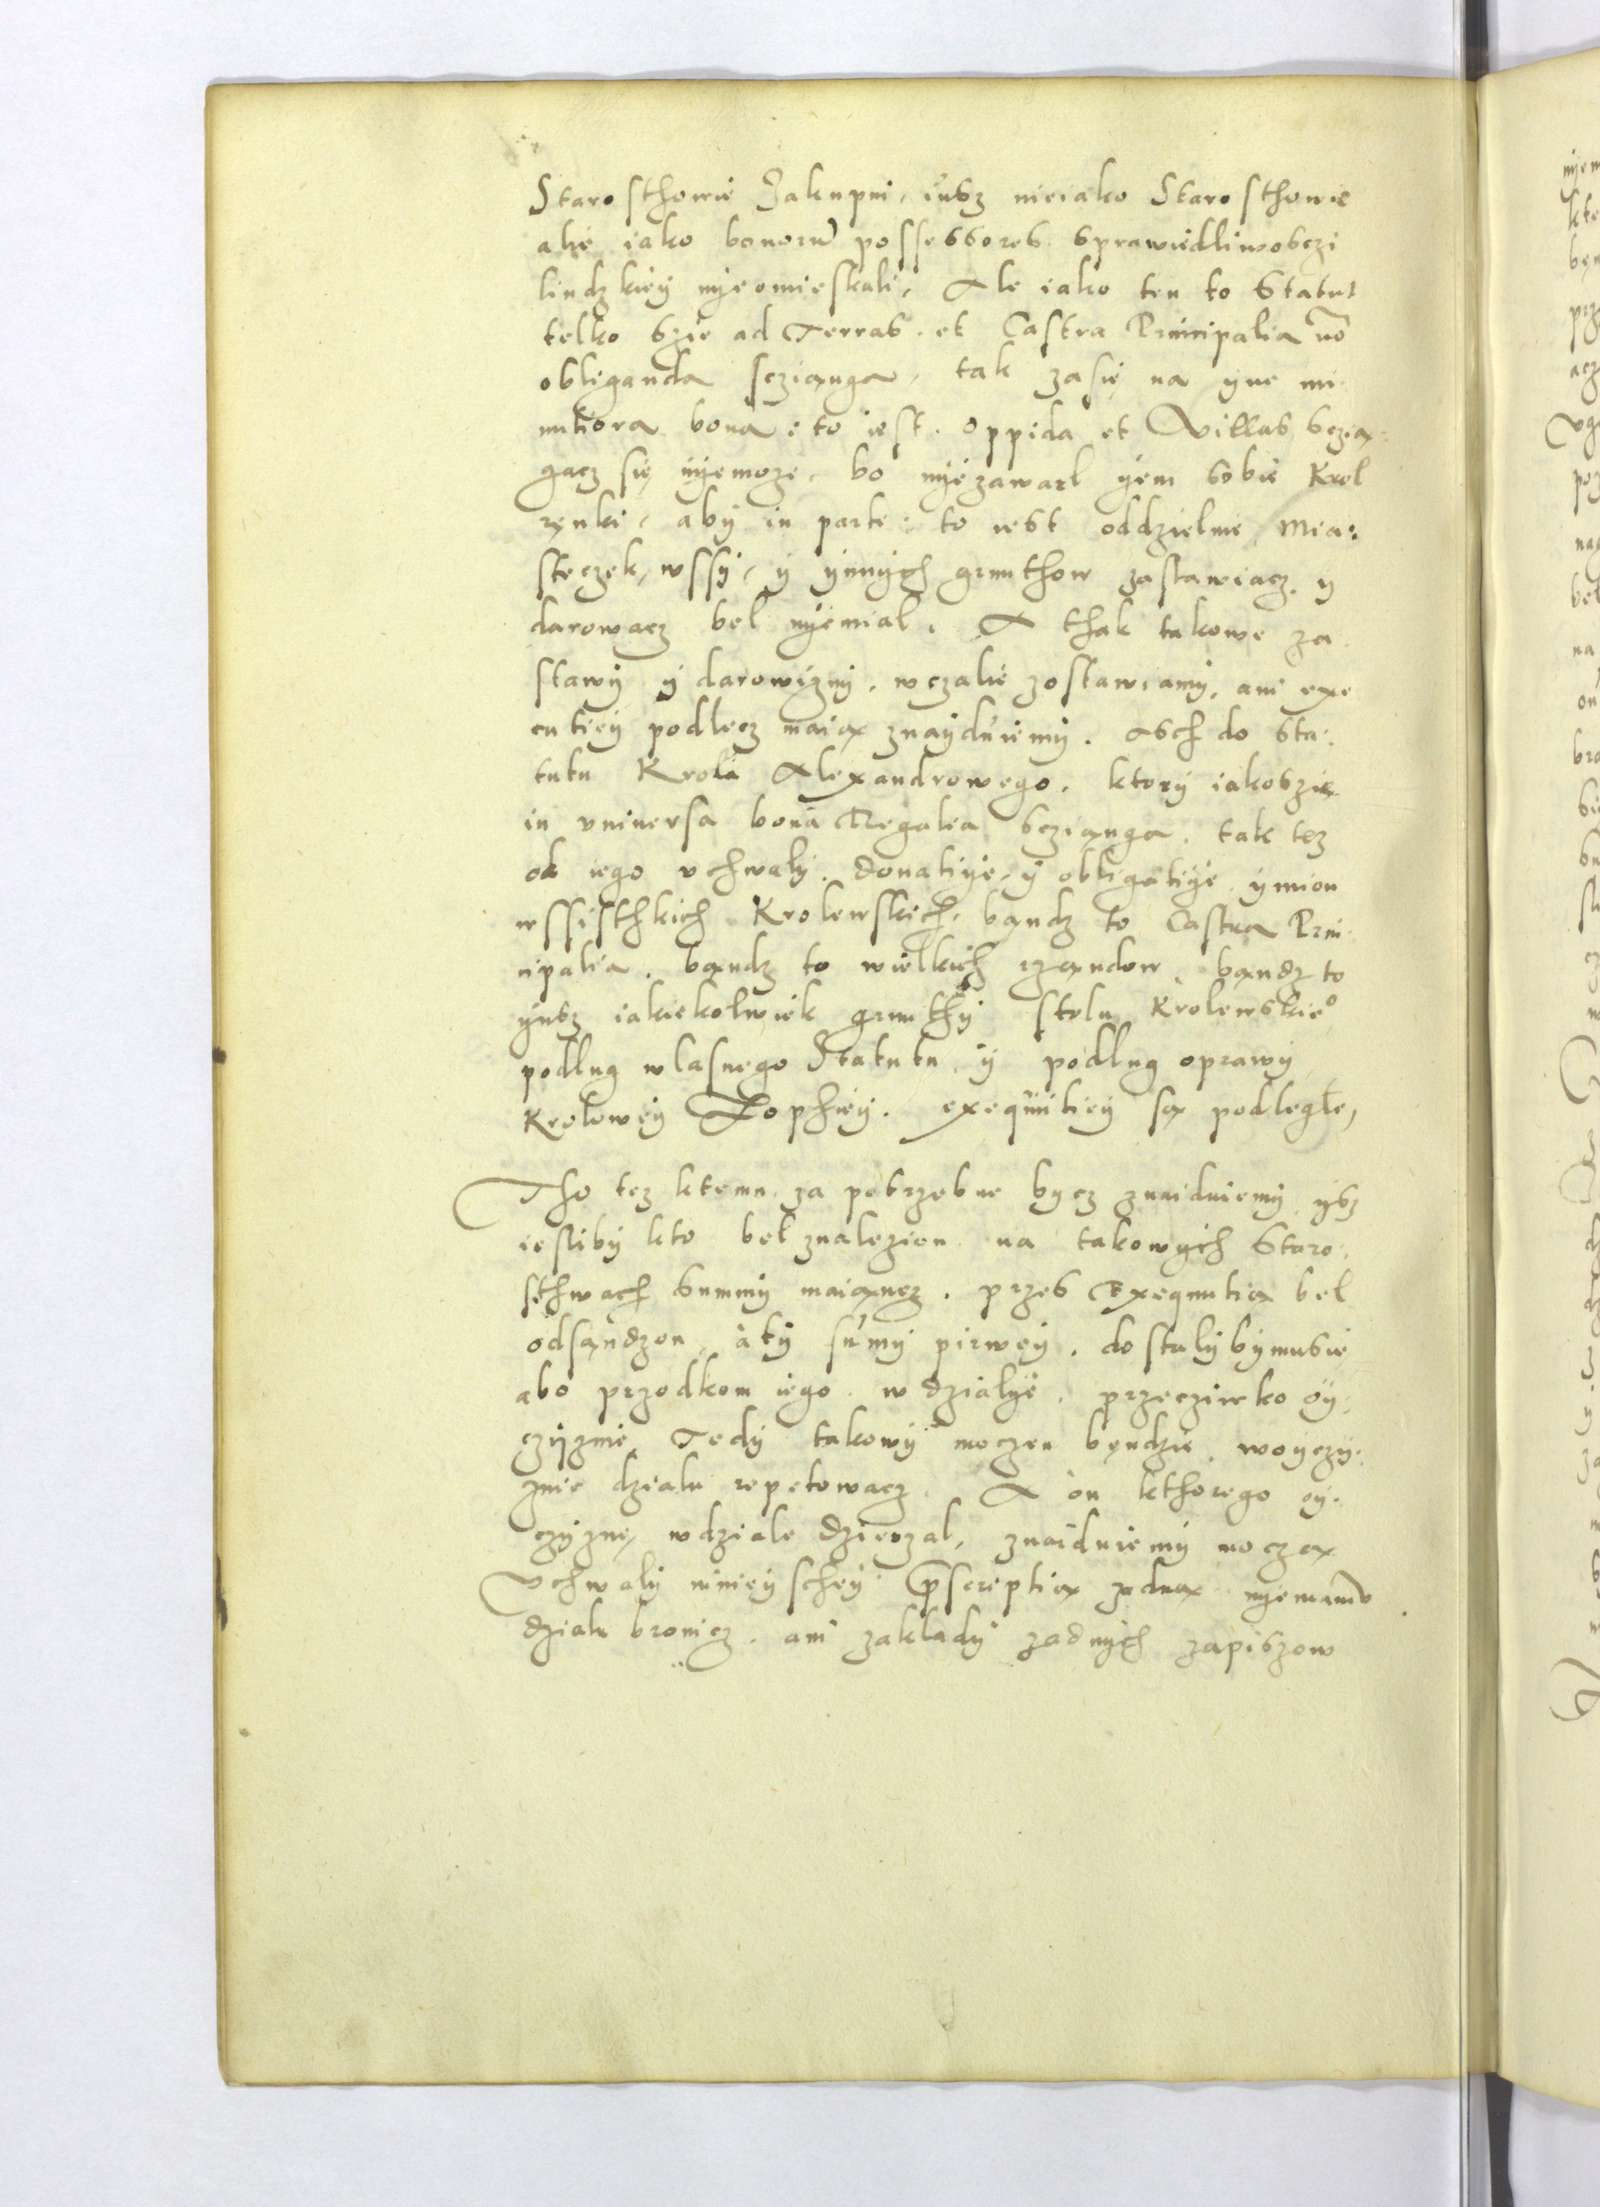 Starosthowie Zakupni, iusz nieiako Starosthowie
alie iako bonorũ possessores. sprawiedliwosczi
liudzkiey nyeomieskali, Ale iako ten to Statut
telko szie ad Terras. et Castra Principalia nõ
obliganda sczianga, tak zasię na yne mi
nutiora bona: to iest. oppida et Villas sczia:
gacz się nyemoze, bo nyezawarl yem sobie Krol
ręnki, aby in parte: to iest oddzielnie, Mia:
steczek, wssy, y ynnych grunthow zastawiacz, y
darowacz bel nyemial. A thak takowe za
stawy y darowizny, wczalie zostawiamy, ani exe
cutiey podlecz maią znayduiemy. Asch do Sta:
tutu Krola Alexandrowego, ktory iakoszie
in vniuersa bona Regalia sczianga, tak tez
od iego vchwaly. donatiye, y obligatiye ymion
wssisthkich Krolewskich, bąndz to Castra Prin
cipalia, bandz to wielkich rzandow, bandz to
ynsz iakiekolwiek grunthy stolu Krolewskieo
podlug wlasnego Statutu, y podlug oprawy
Krolowey Zophiey. exequutiey są podlegle,
Tho tez ktemu za potrzebne bycz znaiduiemy, ysz
iesliby kto bel znalezion na takowych Staro,
sthwach Summy maiąncz, przes Exequutią bel
odsąndzon, a ty sũmy pirwey, dostalybymusie
abo przodkom iego w dzialye, przecziwko oy,
czyznie, Tedy takowy moczen będzie, woyczy:
znie dzialu repetowacz. A on kthorego oy,
czyznę, wdziale dzierzal, znaiduiemy moczą
Vchwaly ninieyschey p̃scriptią zadną nyemamu
dzialu bronicz, ani zaklady zadnych zapiszow